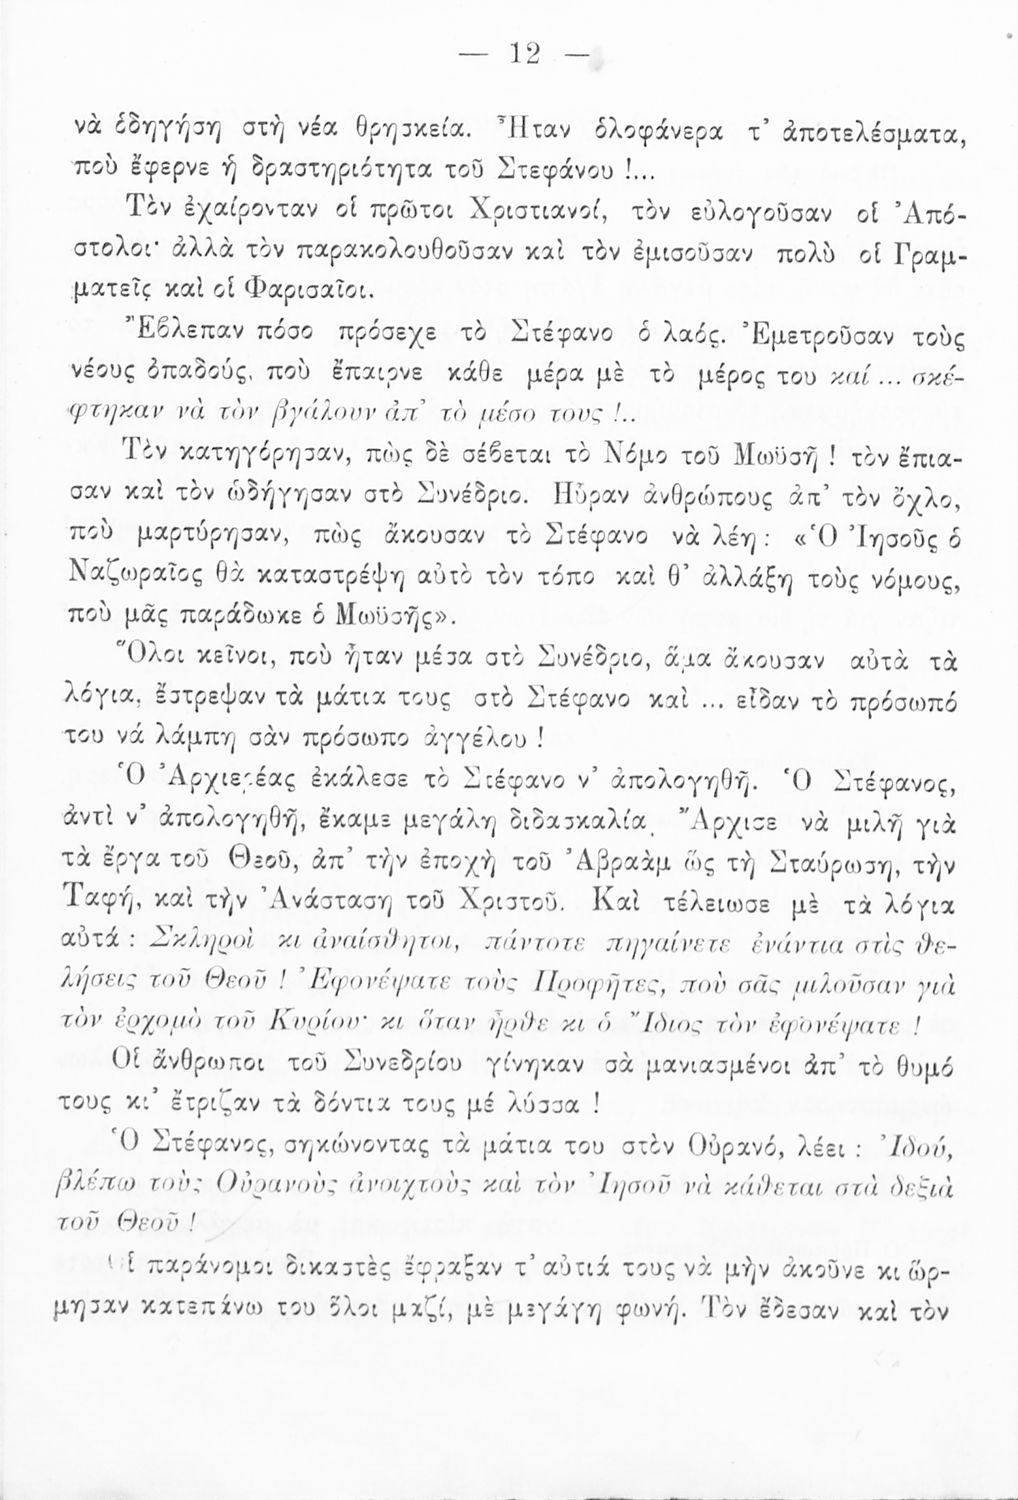 — 12 —
νὰ ὁδηγήση στὴ νέα θρησκεία. Ἦταν ὁλοφάνερα τ’ ἀποτελέσματα,
ποὺ ἔφερνε ἡ δραστηριότητα τοῦ Στεφάνου !...
Τὸν ἐχαίρονταν οἱ πρῶτοι Χριστιανοί, τὸν εὐλογοῦσαν οἱ Ἀπό-
στολοι· ἀλλὰ τὸν παρακολουθοῦσαν καὶ τὸν ἐμισοῦσαν πολὺ οἱ Γραμ-
ματεῖς καὶ οἱ Φαρισαῖοι.
Ἔβλεπαν πόσο πρόσεχε τὸ Στέφανο ὁ λαός. Ἐμετροῦσαν τοὺς
νέους ὀπαδούς, ποὺ ἔπαιρνε κάθε μέρα μὲ τὸ μέρος του καί ... σκέ-
φτηκαν νὰ τὸν βγάλουν ἀπ’ τὸ μέσο τους !..
Τὸν κατηγόρησαν, πὼς δὲ σέβεται τὸ Νόμο τοῦ Μωϋσῆ ! τὸν ἔπια-
σαν καὶ τὸν ὡδήγησαν στὸ Συνέδριο. Ηὗραν ἀνθρώπους ἀπ’ τὸν ὄχλο,
ποὺ μαρτύρησαν, πὼς ἄκουσαν τὸ Στέφανο νὰ λέη : «Ὁ Ἰησοῦς ὁ
Ναζωραῖος θὰ καταστρέψη αὐτὸ τὸν τόπο καὶ θ’ ἀλλάξη τοὺς νόμους,
ποὺ μᾶς παράδωκε ὁ Μωϋσῆς».
Ὅλοι κεῖνοι, ποὺ ἦταν μέσα στὸ Συνέδριο, ἅμα ἄκουσαν αὐτὰ τὰ
λόγια, ἔστρεψαν τὰ μάτια τους στὸ Στέφανο καὶ ... εἶδαν τὸ πρόσωπό
του νά λάμπη σὰν πρόσωπο ἀγγέλου !
Ὁ Ἀρχιερέας ἐκάλεσε τὸ Στέφανο ν’ ἀπολογηθῆ. Ὁ Στέφανος,
ἀντὶ ν’ ἀπολογηθῆ, ἔκαμε μεγάλη διδασκαλία. Ἄρχισε νὰ μιλῆ γιὰ
τὰ ἔργα τοῦ Θεοῦ, ἀπ’ τὴν ἐποχὴ τοῦ Ἀβραὰμ ὥς τὴ Σταύρωση, τὴν
Ταφή, καὶ τὴν Ἀνάσταση τοῦ Χριστοῦ. Καὶ τέλειωσε μὲ τὰ λόγια
αὐτά : Σκληροὶ κι ἀναίσθητοι, πάντοτε πηγαίνετε ἐνάντια στὶς θε-
λήσεις τοῦ Θεοῦ ! Ἐφονέψατε τοὺς Προφῆτες, ποὺ σᾶς μιλοῦσαν γιὰ
τὸν ἐρχομὸ τοῦ Κυρίου· κι ὅταν ἦρθε κι ὁ Ἴδιος τὸν ἐφονέψατε !
Οἱ ἄνθρωποι τοῦ Συνεδρίου γίνηκαν σὰ μανιασμένοι ἀπ’ τὸ θυμό
τους κι’ ἔτριζαν τὰ δόντια τους μέ λύσσα !
Ὁ Στέφανος, σηκώνοντας τὰ μάτια του στὸν Οὐρανό, λέει : Ἰδού,
βλέπω τοὺς Οὐρανοὺς ἀνοιχτοὺς καὶ τὸν Ἰησοῦ νὰ κάθεται στὰ δεξιὰ
τοῦ Θεοῦ !
Οἱ παράνομοι δικαστὲς ἔφραξαν τ’ αὐτιά τους νὰ μὴν ἀκοῦνε κι ὥρ-
μησαν κατεπάνω του ὅλοι μαζί, μὲ μεγάγη φωνή. Τὸν ἔδεσαν καὶ τὸν